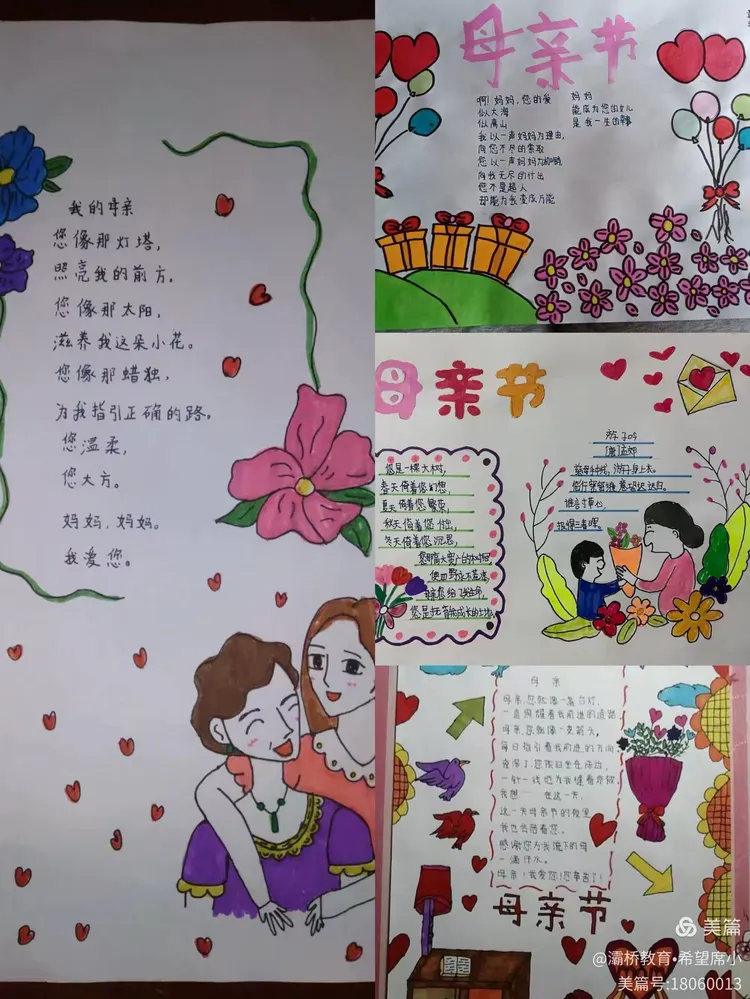 我的母亲
您像那灯塔,
照亮我的前方。
您像那太阳,
滋养我这朵小花。
您像那蜡独,
为我指引正确的路。
您温柔,
您大方。
妈妈,妈妈。
我爱您。
母亲节
啊!妈妈,您的爱
似大海
似高山
我以一声妈妈为理由,
向您不尽的索取
您以一声妈妈为
向我无尽的付出
您不是超人
却能为我变成万能
妈妈
能成为您的女儿
是我一生的
母亲节
您是一棵大树,
春天倚着您幻想,
夏天倚着您繁荣,
秋天倚着您
冬天倚着您沉思,
您是
游子吟
慈母手中线,游子身上衣。
临行密密缝,意恐迟迟归。
谁言寸草心,
报得三春晖。
母亲
母亲,您就像一盏台灯,
一直照耀着我前进的道路
母亲,您就像一支箭头,
每日指引着我前进的方向
夜深了,您依旧坐在床边,
一针一线
我想 在这一天,
这一天母亲节的夜里
我也会陪着您,
感谢您为我流下的每
一滴汗水。
母亲!我爱您!您辛苦了!
母亲节
美篇
@灞桥教育•希望席小
美篇号:18060013